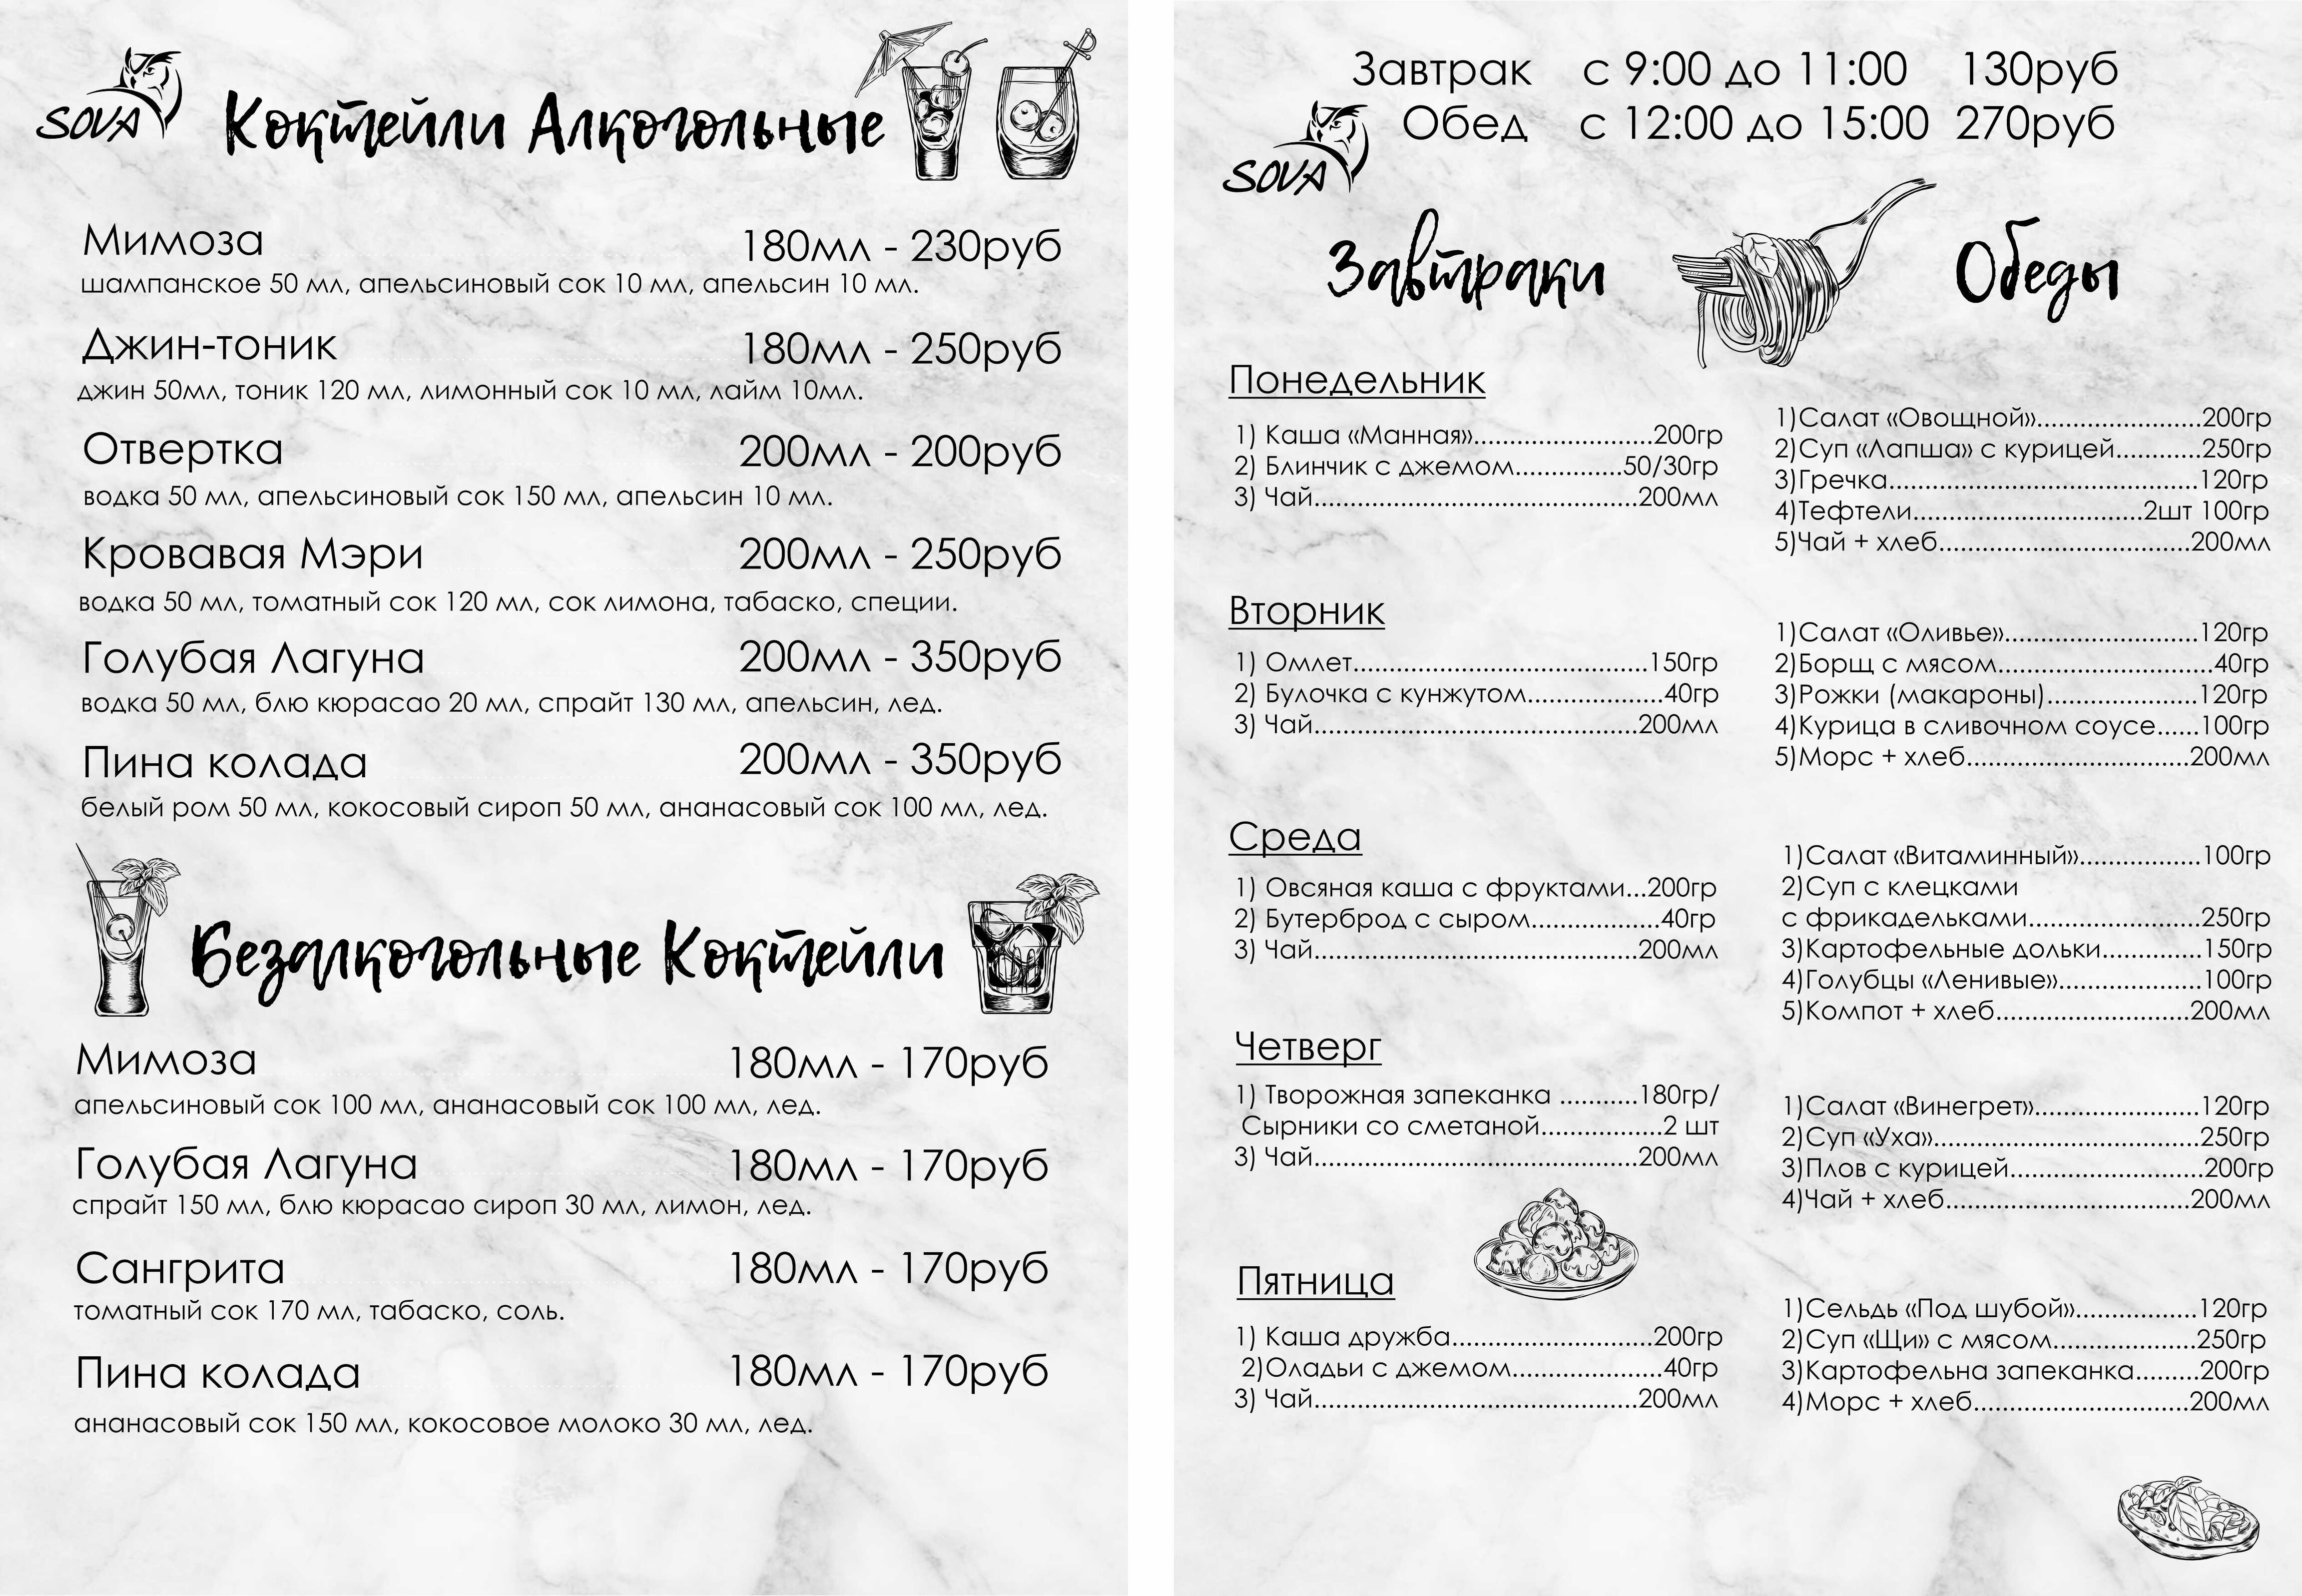 SOVA
Коктейли Алкогольные
Мимоза 180мл - 230руб
шампанское 50 мл, апельсиновый сок 10 мл, апельсин 10 мл.
Джин-тоник 180мл - 250руб
джин 50мл, тоник 120 мл, лимонный сок 10 мл, лайм 10мл.
Отвертка 200мл - 200руб
водка 50 мл, апельсиновый сок 150 мл, апельсин 10 мл.
Кровавая Мэри 200мл - 250руб
водка 50 мл, томатный сок 120 мл, сок лимона, табаско, специи.
Голубая Лагуна 200мл - 350руб
водка 50 мл, блю кюрасао 20 мл, спрайт 130 мл, апельсин, лед.
Пина колада 200мл - 350руб
белый ром 50 мл, кокосовый сироп 50 мл, ананасовый сок 100 мл, лед.
Безалкогольные Коктейли
Мимоза 180мл - 170руб
апельсиновый сок 100 мл, ананасовый сок 100 мл, лед.
Голубая Лагуна 180мл - 170руб
спрайт 150 мл, блю кюрасао сироп 30 мл, лимон, лед.
Сангрита 180мл - 170руб
томатный сок 170 мл, табаско, соль.
Пина колада 180мл - 170руб
ананасовый сок 150 мл, кокосовое молоко 30 мл, лед.
Завтрак с 9:00 до 11:00 130руб
Обед с 12:00 до 15:00 270руб
SOVA
Завтраки
Обеды
Понедельник
1) Каша «Манная».........................200гр
2) Блинчик с джемом...............50/30гр
3) Чай.............................................200мл
1)Салат «Овощной».......................200гр
2)Суп «Лапша» с курицей............250гр
3)Гречка...........................................120гр
4)Тефтели................................2шт 100гр
5)Чай + хлеб...................................200мл
Вторник
1) Омлет.........................................150гр
2) Булочка с кунжутом...................40гр
3) Чай.............................................200мл
1)Салат «Оливье»...........................120гр
2)Борщ с мясом..............................40гр
3)Рожки (макароны).....................120гр
4)Курица в сливочном соусе......100гр
5)Морс + хлеб...............................200мл
Среда
1) Овсяная каша с фруктами...200гр
2) Бутерброд с сыром..................40гр
3) Чай.............................................200мл
1)Салат «Витаминный».................100гр
2)Суп с клецками
с фрикадельками........................250гр
3)Картофельные дольки..............150гр
4)Голубцы «Ленивые»....................100гр
5)Компот + хлеб...........................200мл
Четверг
1) Творожная запеканка ...........180гр/
Сырники со сметаной.................2 шт
3) Чай.............................................200мл
1)Салат «Винегрет».......................120гр
2)Суп «Уха».....................................250гр
3)Плов с курицей...........................200гр
4)Чай + хлеб..................................200мл
Пятница
1) Каша дружба............................200гр
2)Оладьи с джемом.....................40гр
3) Чай.............................................200мл
1)Сельдь «Под шубой».................120гр
2)Суп «Щи» с мясом....................250гр
3)Картофельна запеканка.........200гр
4)Морс + хлеб..............................200мл